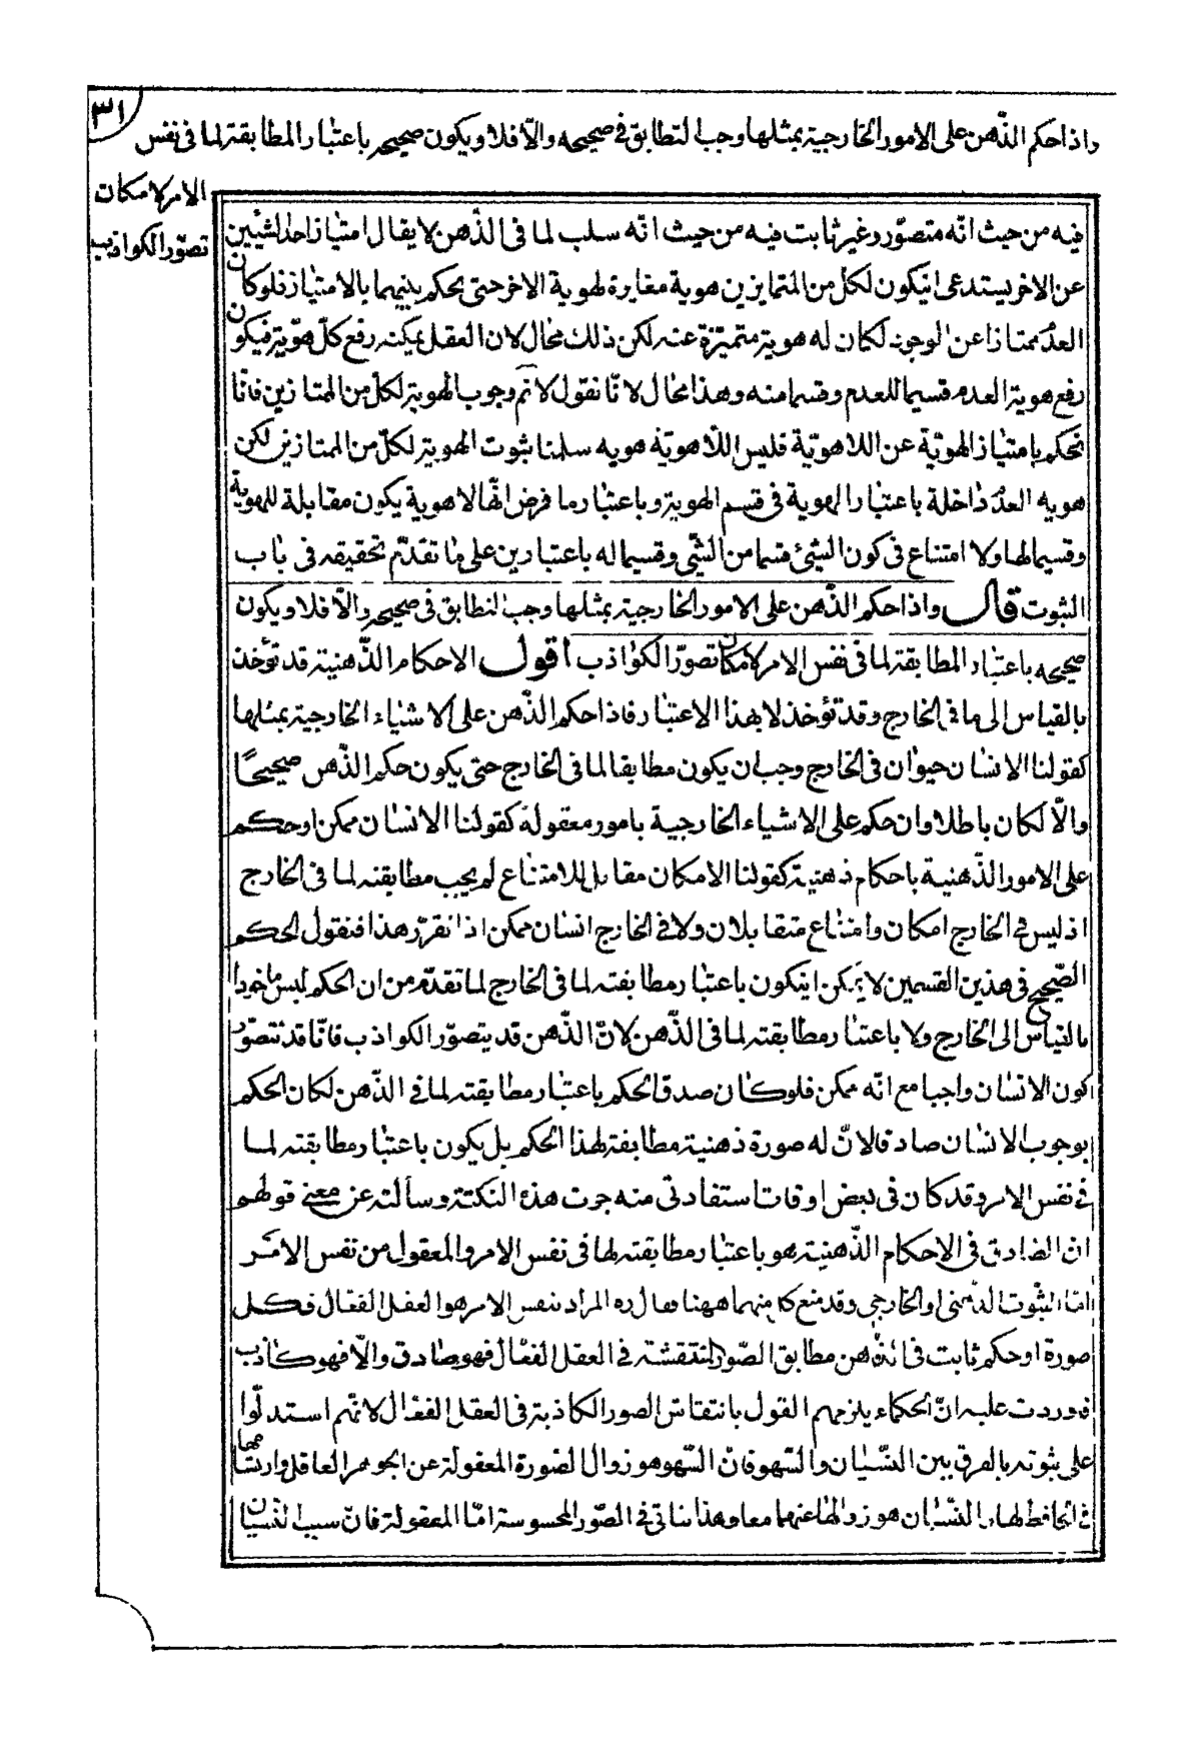 ٣١
واذا حكم الذّهن على الامور الخارجية بمثلها وجب التطابق فى صحيحه والّا فلا ويكون صحيحه باعتبار المطابقة لما فى نفس
الامر لامكان
تصوّر الكواذب
فيه من حيث انّه متصوّر وغير ثابت فيه من حيث انّه سلب لما فى الذّهن لا يقال امتياز احد الشيئين
عن الاخر يستدعى ان يكون لكل من المتمايزين هوية مغايرة لهوية الاخر حتى يحكم بينهما بالامتياز فلو كان
العدم ممتازا عن الوجود لكان له هوية متميّزة عنه لكن ذلك محال لان العقل يمكنه رفع كلّ هويّة فيكون
رفع هوية العدم قسيما للعدم وقسما منه وهذا محال لانّا نقول لا نم وجوب الهوية لكل من الممتازين فانّا
نحكم بامتياز الهويّة عن اللاهويّة فليس اللّاهويّة هويه سلمنا ثبوت الهوية لكلّ من الممتازين لكن
هويه العدم داخلة باعتبار الهوية فى قسم الهوية وباعتبار ما فرض انّها لا هوية يكون مقابلة للهوية
وقسيما لها ولا امتناع فى كون الشيئ قسما من الشّى وقسيما له باعتبارين على ما تقدّم تحقيقه فى باب
الثبوت قال واذا حكم الذّهن على الامور الخارجية بمثلها وجب التطابق فى صحيحه والّا فلا ويكون
صحيحه باعتبار المطابقة لما فى نفس الامر لامكان تصوّر الكواذب اقول الاحكام الذّهنية قد تؤخذ
بالقياس الى ما فى الخارج وقد تؤخذ لا بهذا الاعتبار فاذا حكم الذّهن على الاشياء الخارجية بمثلها
كقولنا الانسان حيوان فى الخارج وجب ان يكون مطابقا لما فى الخارج حتى يكون حكم الذّهن صحيحًا
والّا لكان باطلا وان حكم على الاشياء الخارجية بامور معقولة كقولنا الانسان ممكن او حكم
على الامور الذّهنية باحكام ذهنية كقولنا الامكان مقابل للامتناع لم يجب مطابقته لما فى الخارج
اذ ليس فى الخارج امكان وامتناع متقابلان ولا فى الخارج انسان ممكن اذا تقرّر هذا فنقول الحكم
الصّحيح فى هذين القسمين لا يمكن ان يكون باعتبار مطابقته لما فى الخارج لما تقدّم من ان الحكم ليس ماخوذا
بالقياس الى الخارج ولا باعتبار مطابقته لما فى الذّهن لانّ الذّهن قد يتصوّر الكواذب فانّا قد نتصوّر
كون الانسان واجبا مع انّه ممكن فلو كان صدق الحكم باعتبار مطابقته لما فى الذّهن لكان الحكم
بوجوب الانسان صادقا لانّ له صورة ذهنية مطابقة لهذا الحكم بل يكون باعتبار مطابقته لما
فى نفس الامر وقد كان فى بعض اوقات استفادتى منه جرت هذه النكتة وسالته عن معنى قولهم
ان الصادق فى الاحكام الذّهنية هو باعتبار مطابقته لها فى نفس الامر والمعقول من نفس الامر
امّا الثبوت الذّهنى او الخارجى وقد منع كل منهما ههنا فقال ره المراد بنفس الامر هو العقل الفعّال فكل
صورة او حكم ثابت فى الذّهن مطابق الصّور المنتقشة فى العقل الفعّال فهو صادق والّا فهو كاذب
فوردت عليه انّ الحكماء يلزمهم القول بانتقاش الصور الكاذبة فى العقل الفعّال لانّهم استدلّوا
على ثبوته بالفرق بين النسّيان والسّهو فانّ السّهو هو زوال الصّورة المعقولة عن الجوهر العاقل وارتسامها
فى الحافظ لها والنسّيان هو زوالها عنهما معا وهذا يتاتى فى الصّور المحسوسة امّا المعقولة فانّ سبب النّسيان